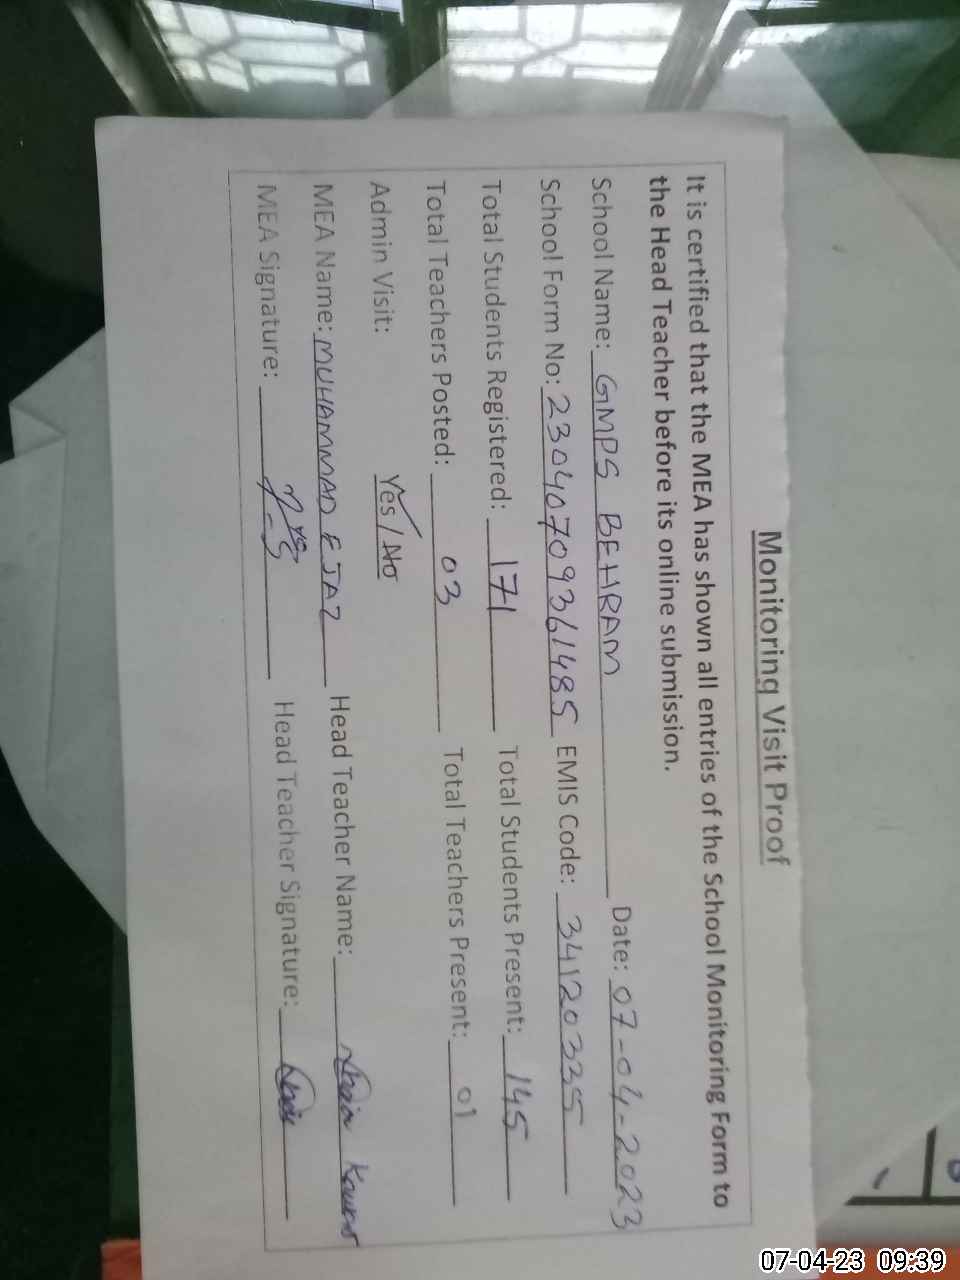 Monitoring Visit Proof
It is certified that the MEA has shown all entries of the School Monitoring Form to
the Head Teacher before its online submission.
School Name: GMPS BEHRAM Date: 07-04-2023
School Form No: 23040709361485 EMIS Code: 34120335
Total Students Registered: 171 Total Students Present: 145
Total Teachers Posted: 03 Total Teachers Present: 01
Admin Visit: Yes / No
MEA Name: MUHAMMAD EJAZ Head Teacher Name:
MEA Signature: Head Teacher Signature:
07-04-23 09:39